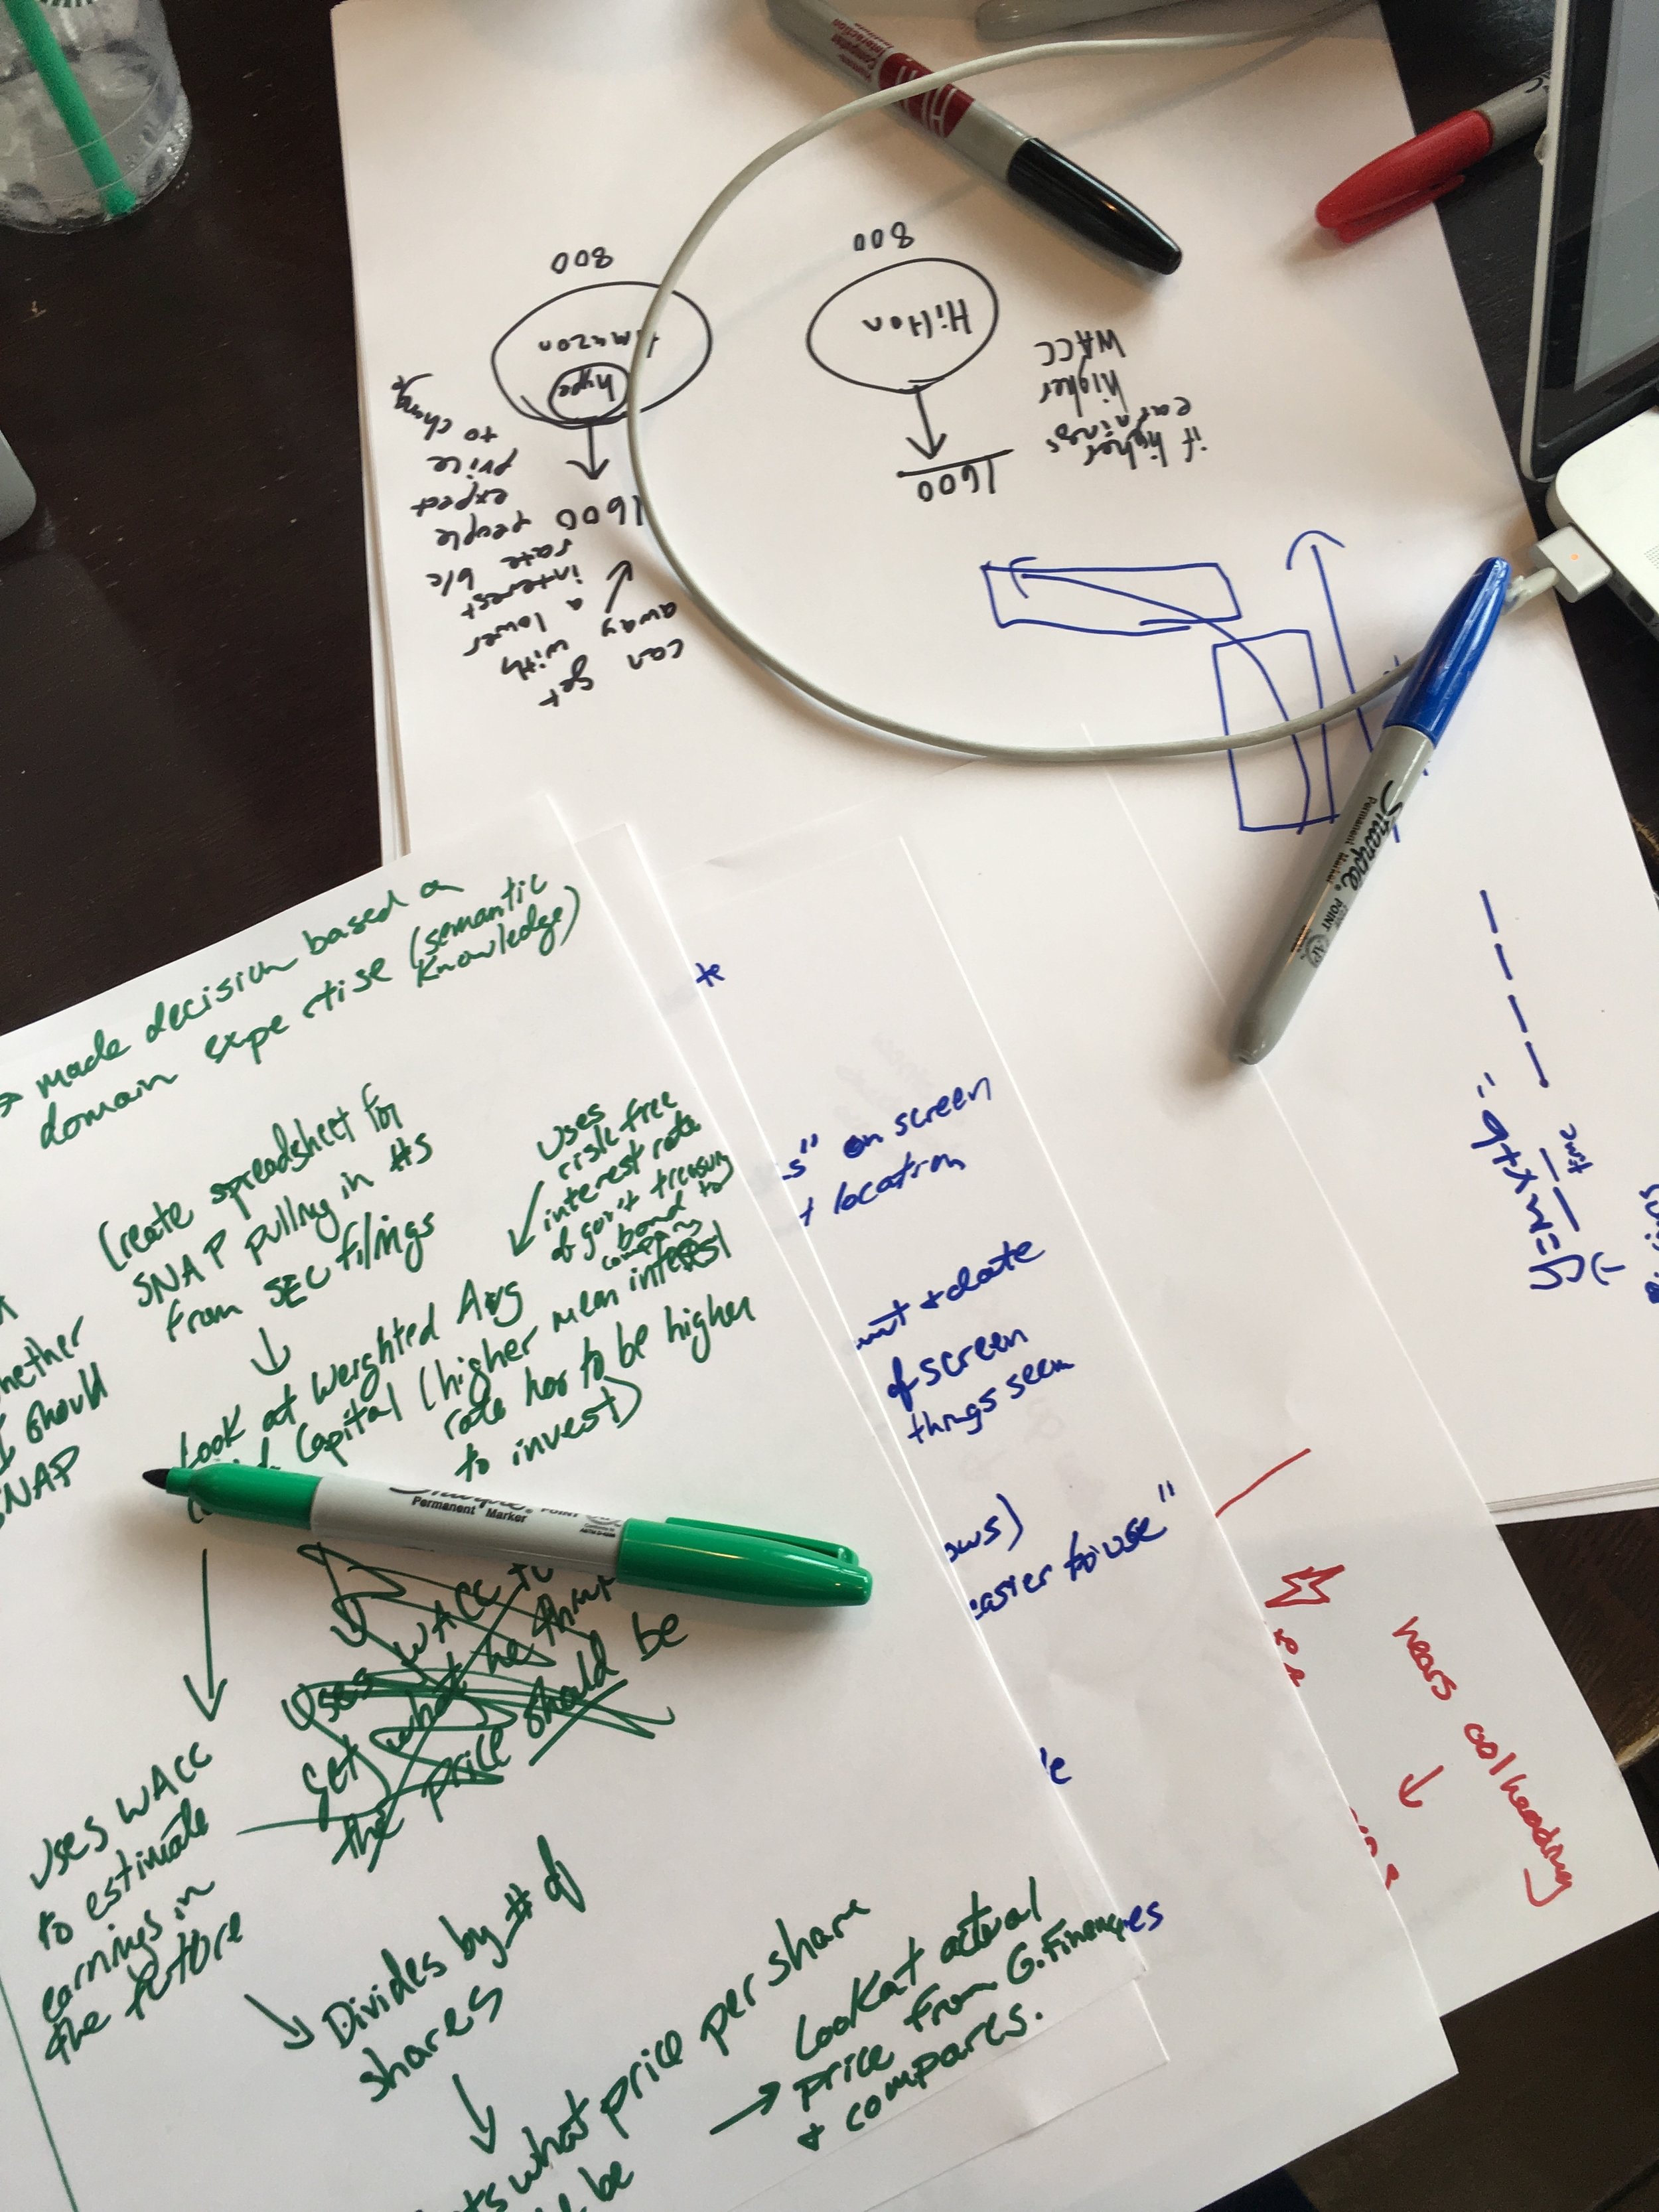 800
800
Amazon
hype
Hilton
1600
1600
if higher
earnings
higher
WACC
can get
away with
a lower
interest
rate b/c
people
expect
price
to change
Human
Computer
Interaction
Institute
HCII
Sharpie®
Permanent Marker
POINT
y=mx+b"
time
made decision based on
domain expertise (semantic
Knowledge)
Create spreadsheet for
SNAP pulling in #s
from SEC filings
uses
risk free
interest rate
of gov't treasury
bond to
company
whether
I should
SNAP
Look at Weighted Avg
Capital (higher mean interest
rate has to be higher
to invest)
Sharpie®
Permanent Marker
POINT
Uses WACC to
get what he thinks
the price should be
Uses WACC
to estimate
earnings in
the future
Divides by # of
shares
what price per share
be
Look at actual
price from G.Finance
+ compares.
te
s" on screen
t location
+ date
of screen
things seem
ows)
easier to use"
le
es
hears
col heading